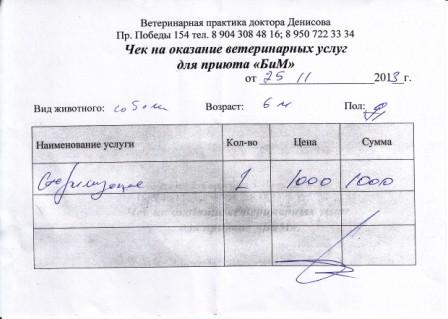 Ветеринарная практика доктора Денисова
Пр. Победы 154 тел. 8 904 308 48 16; 8 950 722 33 34
Чек на оказание ветеринарных услуг
для приюта «БиМ»
от 25 11 2013 г.
Вид животного: собака Возраст: 6 м Пол:
Наименование услуги Кол-во Цена Сумма
Стерилизация 1 1000 1000